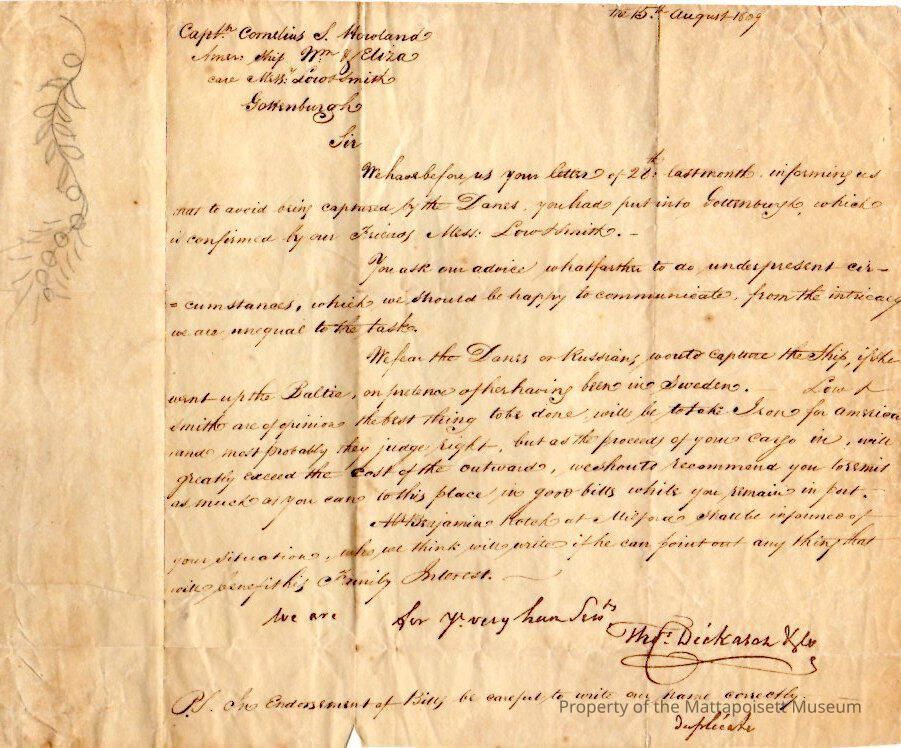 the 15th August 1809
Captn. Cornelius S. Howland
Amer: Ship Wm & Eliza
care Messrs. Low & Smith
Gottenburgh
Sir
We have before us your letter of 28th. last month informing us
that to avoid being captured by the Danes, you had put into Gottenburgh, which
is confirmed by our Friends Mess: Low & Smith. -
You ask our advice what farther to do, under present cir-
= cumstances, which we should be happy to communicate, from the intricacy
we are unequal to the task.
We fear the Danes or Russians, would capture the Ship, if she
went up the Baltic, on pretence of her having been in Sweden. Low &
Smith are of opinion the best thing to be done, will be to take Iron for America
and most probably they judge right, but as the proceeds of your Cargo in, will
greatly exceed the Cost of the outward, we should recommend you to remit
as much as you can to this place in good bills while you remain in port. -
Mr. Benjamin Rotch at Milford shall be informed of
your situation, who we think will write if he can point out any thing that
will benefit his Family Interest.
We are Sir Yr. very hum Servts
Thos. Dickason & Co
P.S. In Endorsement of Bills be careful to write our name correctly.
duplicate
Property of the Mattapoisett Museum